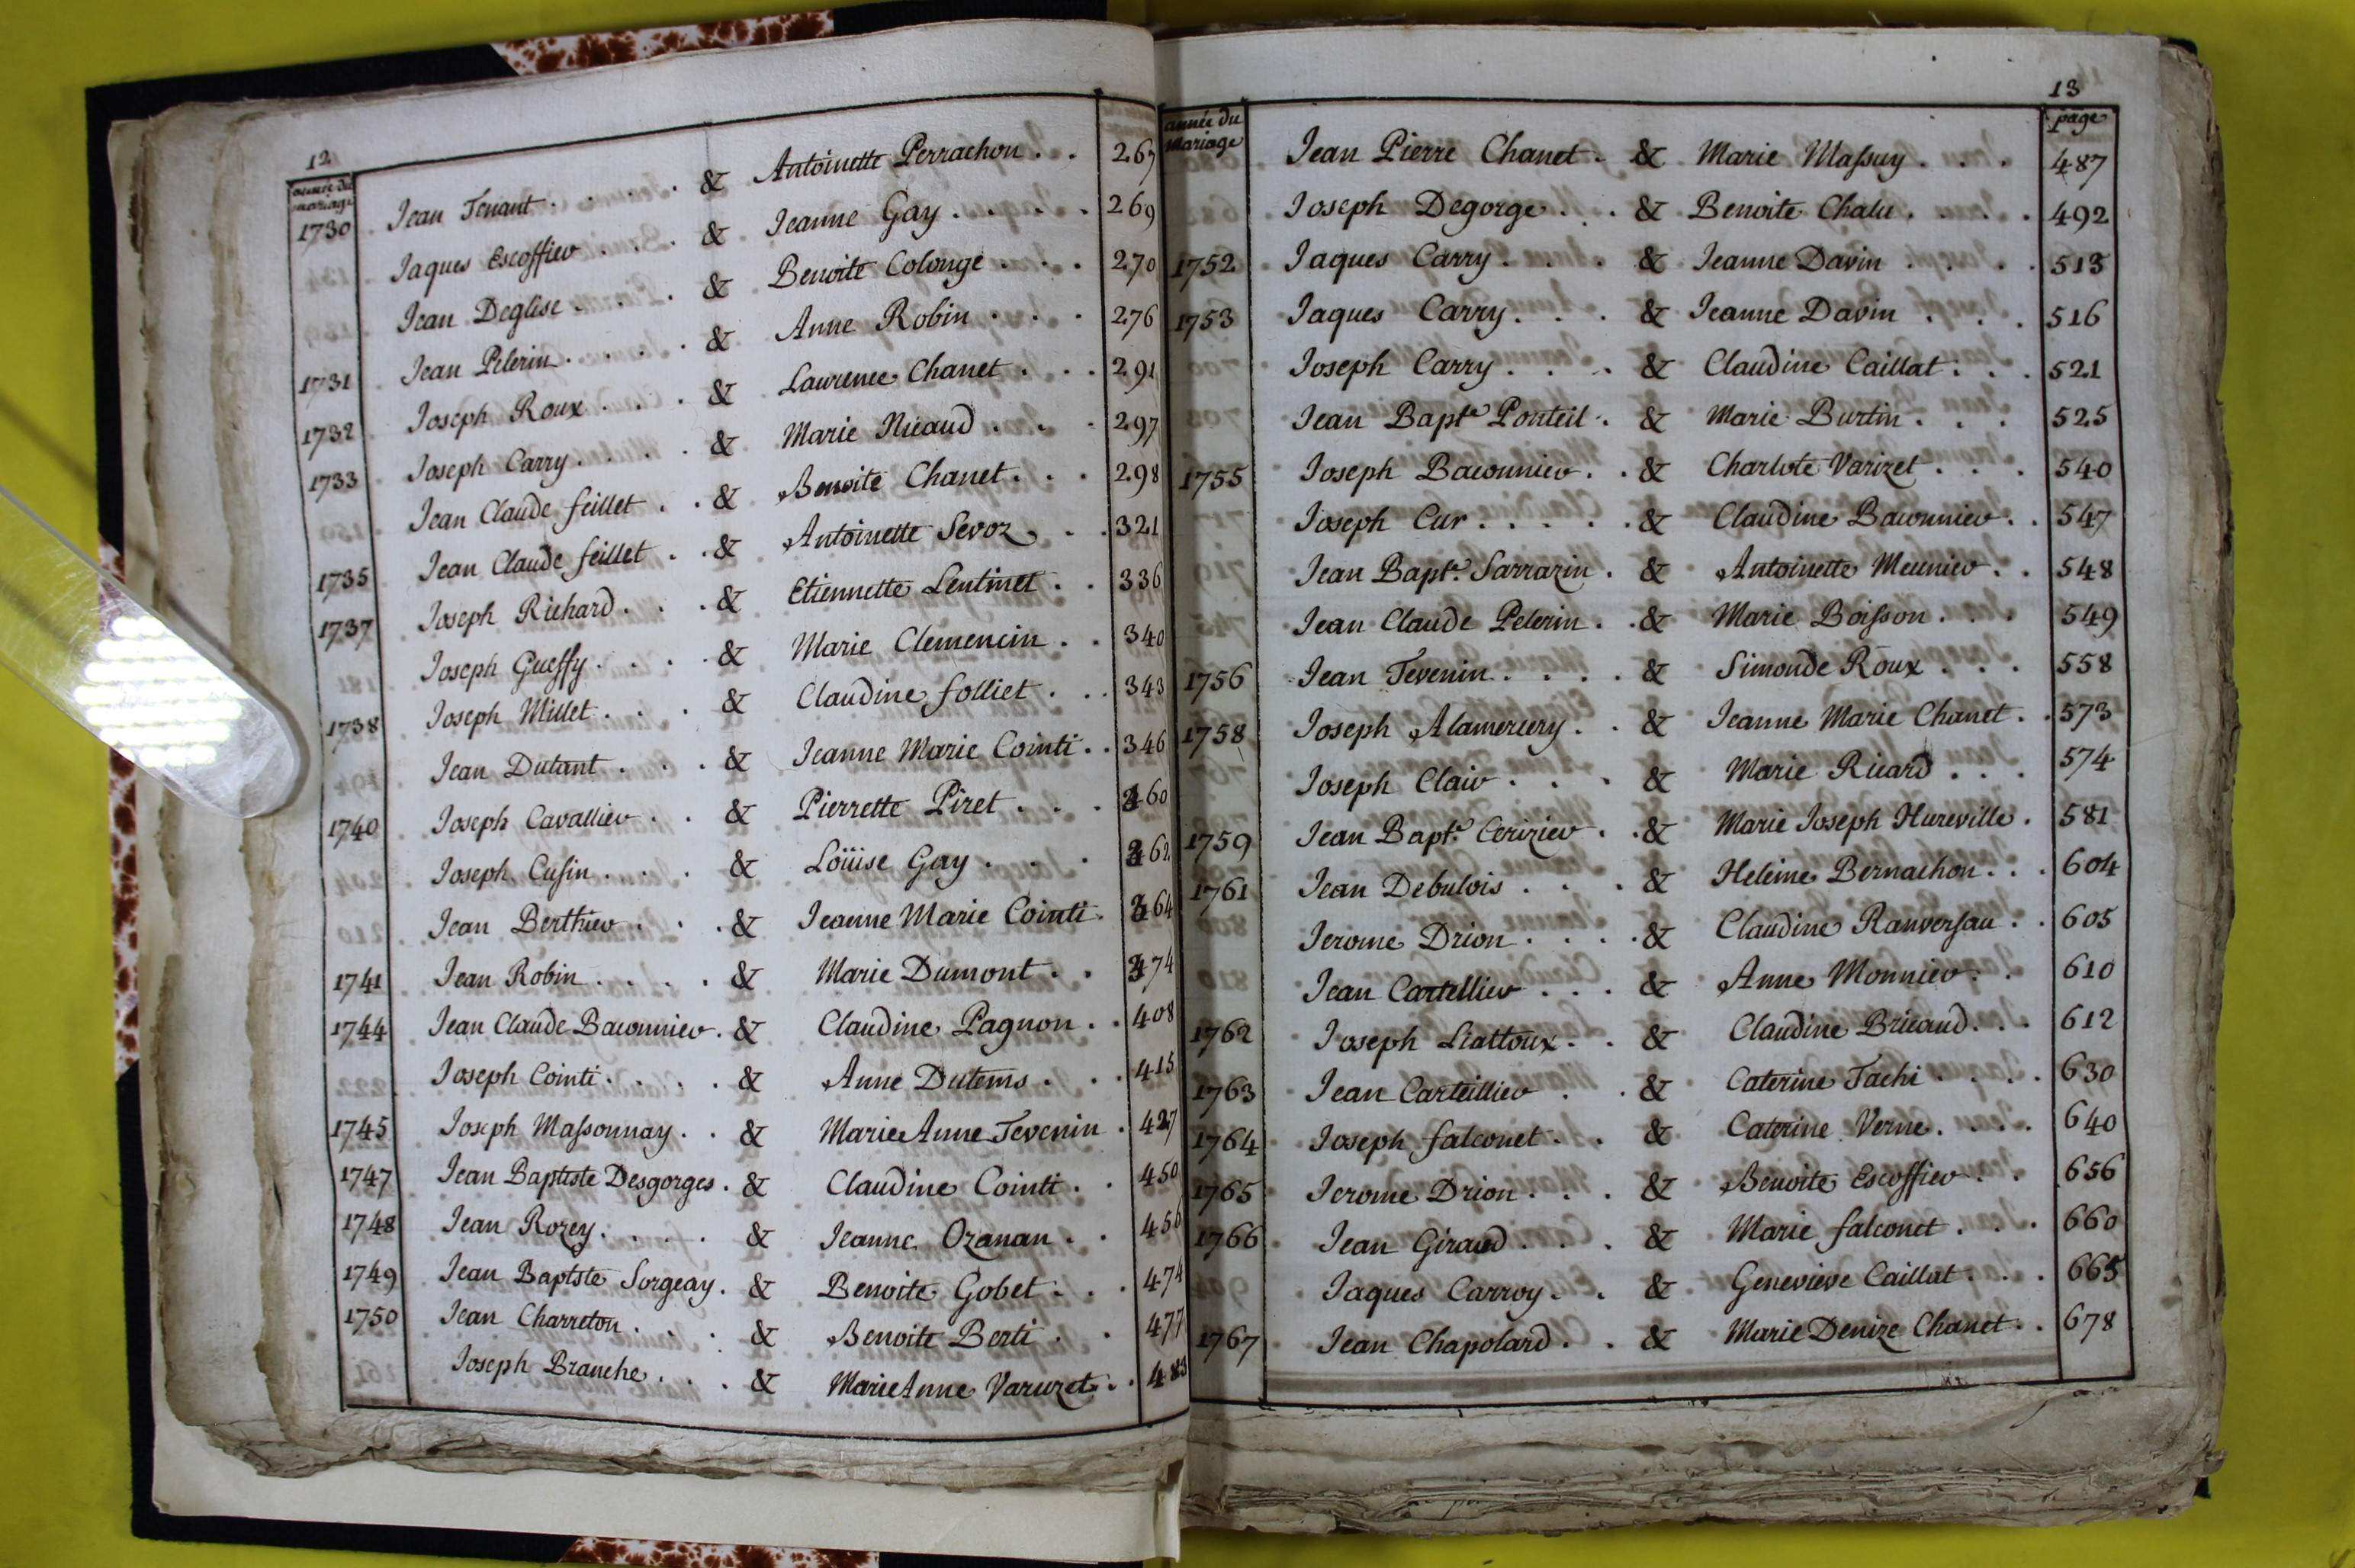 12
année du mariage
1730 Jean Tenant . . . . & Antoinette Perrachon . . 267
Jaques Escoffier . . . & Jeanne Gay . . . . . 269
Jean Deglise . . . . & Benoite Colonge . . . 270
1731 Jean Pelerin . . . . . & Anne Robin . . . 276
1732 Joseph Roux . . . . & Laurence Chanet . . . 291
1733 Joseph Carry . . . . . & Marie Nicaud . . . 297
Jean Claude feillet . . & Benoite Chanet . . . 298
1735 Jean Claude feillet . . & Antoinette Sevoz . . 321
1737 Joseph Richard . . . & Etiennette Lentinet . . 336
Joseph Gueffy . . . . & Marie Clemencin . . 340
1738 Joseph Millet . . . . & Claudine folliet . . . 343
Jean Dutant . . . . & Jeanne Marie Cointi . . 346
1740 Joseph Cavallier . . & Pierrette Piret . . . 360
Joseph Cusin . . . . & Loüise Gay . . . . 362
Jean Berthier . . . & Jeanne Marie Cointi . 364
1741 Jean Robin . . . . . & Marie Dumont . . 374
1744 Jean Claude Baconnier . & Claudine Pagnon . . 408
Joseph Cointi . . . . . & Anne Dutems . . . 415
1745 Joseph Massonnay . . & Marie Anne Tevenin . 427
1747 Jean Baptiste Desgorges . & Claudine Cointi . . 450
1748 Jean Rozey . . . . & Jeanne Ozanan . . 456
1749 Jean Baptste Sorgeay . & Benoite Gobet . . . 474
1750 Jean Charreton . . . & Benoite Berti . . 477
Joseph Branche . . . & Marie Anne Varuzet . . 483
13
année du mariage
page
Jean Pierre Chanet . & Marie Massuy . . . 487
Joseph Degorge . . . & Benoite Chalu . . . . 492
1752 Jaques Carry . . . . & Jeanne Davin . . . . 513
1753 Jaques Carry . . . . & Jeanne Davin . . . 516
Joseph Carry . . . . & Claudine Caillat . . . 521
Jean Bapte Ponteil . & Marie Burtin . . . 525
1755 Joseph Baconnier . . & Charlote Varizet . . . 540
Joseph Cur . . . . . & Claudine Baconnier . . 547
Jean Bapt.e Sarrazin . & Antoinette Meunier . . 548
Jean Claude Pelerin . . & Marie Boisson . . . 549
1756 Jean Tevenin . . . . & Simonde Roux . . . 558
1758 Joseph Alamercery . . & Jeanne Marie Chanet . . 573
Joseph Clair . . . . & Marie Ricard . . . 574
1759 Jean Bapt.e Cerizier . . & Marie Joseph Hureville . 581
1761 Jean Debulois . . . . & Heleine Bernachon . . . 604
Jerome Drion . . . . . & Claudine Ranversau . . 605
Jean Cartellier . . . & Anne Monnier . . 610
1762 Joseph Liattoux . . & Claudine Bricaud . . . 612
1763 Jean Carteillier . . & Caterine Tachi . . . . 630
1764 Joseph falconet . . & Caterine Verne . . . . 640
1765 Jerome Drion . . . . & Benoite Escoffier . . 656
1766 Jean Giraud . . . . & Marie falconet . . . 660
Jaques Carroy . . & Genevieve Caillat . . . 665
1767 Jean Chapolard . . & Marie Denize Chanet . . 678